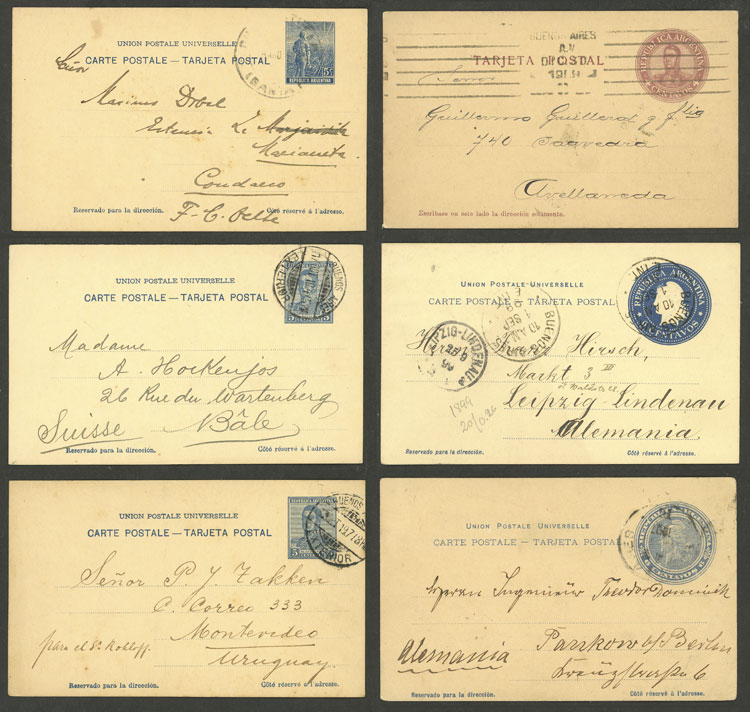 UNION POSTALE UNIVERSELLE
CARTE POSTALE — TARJETA POSTAL
REPUBLICA ARGENTINA
5
Maximo Dobal
Estancia La
Marianeta
Condarco
F. C. Oeste
Reservado para la dirección. Côté réservé à l'adresse.
BUENOS AIRES
TARJETA POSTAL
REPUBLICA ARGENTINA
CENTAVOS
Señor
Guillermo Guillerd y
740 Saavedra
Avellaneda
Escríbase en este lado la dirección solamente.
UNION POSTALE UNIVERSELLE
CARTE POSTALE — TARJETA POSTAL
BUENOS AIRES
5
Madame
A. Hockenjos
26 Rue du Wartenberg
Suisse Bâle
Reservado para la dirección. Côté réservé à l'adresse.
UNION POSTALE UNIVERSELLE
CARTE POSTALE – TARJETA POSTAL
REPUBLICA ARGENTINA
CENTAVOS
BUENOS
10 A
LEIPZIG-LINDENAU
BUENOS
1 SEP
Herrn Hirsch,
Markt 3 III
Leipzig-Lindenau
Alemania.
1899
Reservado para la dirección. Côté réservé à l'adresse.
UNION POSTALE UNIVERSELLE
CARTE POSTALE — TARJETA POSTAL
5
BUENOS
EXTERIOR
Señor P. J. Takken
C. Correo 333
para el Sr. Kohloff. Montevideo
Uruguay.
Reservado para la dirección. Côté réservé à l'adresse.
UNION POSTALE UNIVERSELLE
CARTE POSTALE – TARJETA POSTAL
CENTAVOS
Herrn Ingenieur Theodor Dominik
Pankow b/ Berlin
Alemania Kreuzstraße 6
Reservado para la dirección. Côté réservé à l'adresse.